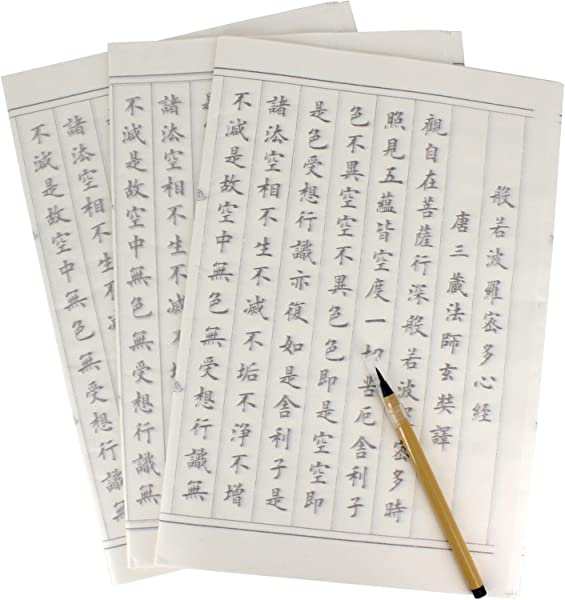 般若波羅密多心經
唐三藏法師玄奘譯
觀自在菩薩行深般若波羅密多時
照見五蘊皆空度一切苦厄舍利子
色不異空空不異色色即是空空即
是色受想行識亦復如是舍利子是
諸法空相不生不滅不垢不淨不增
不減是故空中無色無受想行識無
諸法空相不生不滅不
不減是故空中無色無受想行識無
諸法空相不生
不減是故空中無色無受想行識無